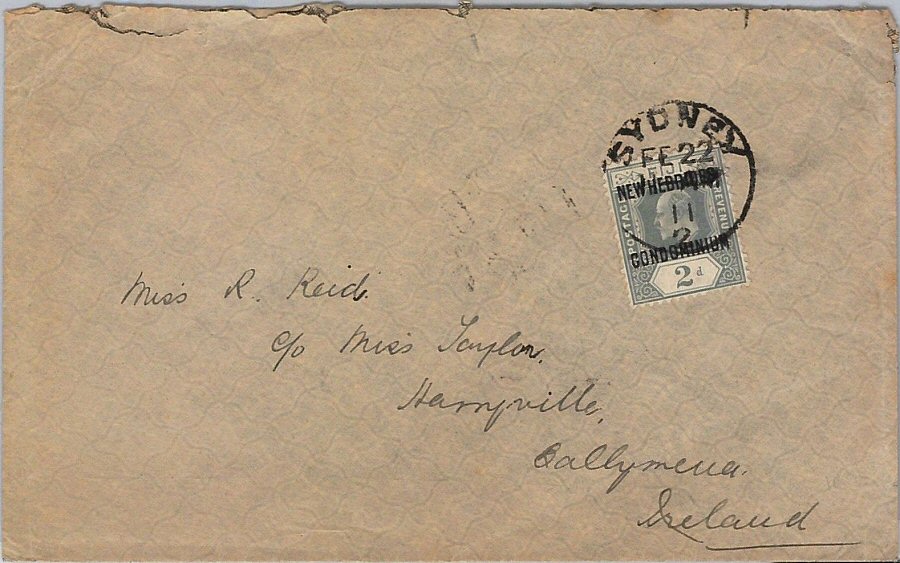 SYDNEY
FE 22
NEW HEBRIDES
11
2
CONDOMINIUM
POSTAGE
REVENUE
2d
Miss R. Reid.
c/o Miss Taylor.
Harryville,
Ballymena.
Ireland